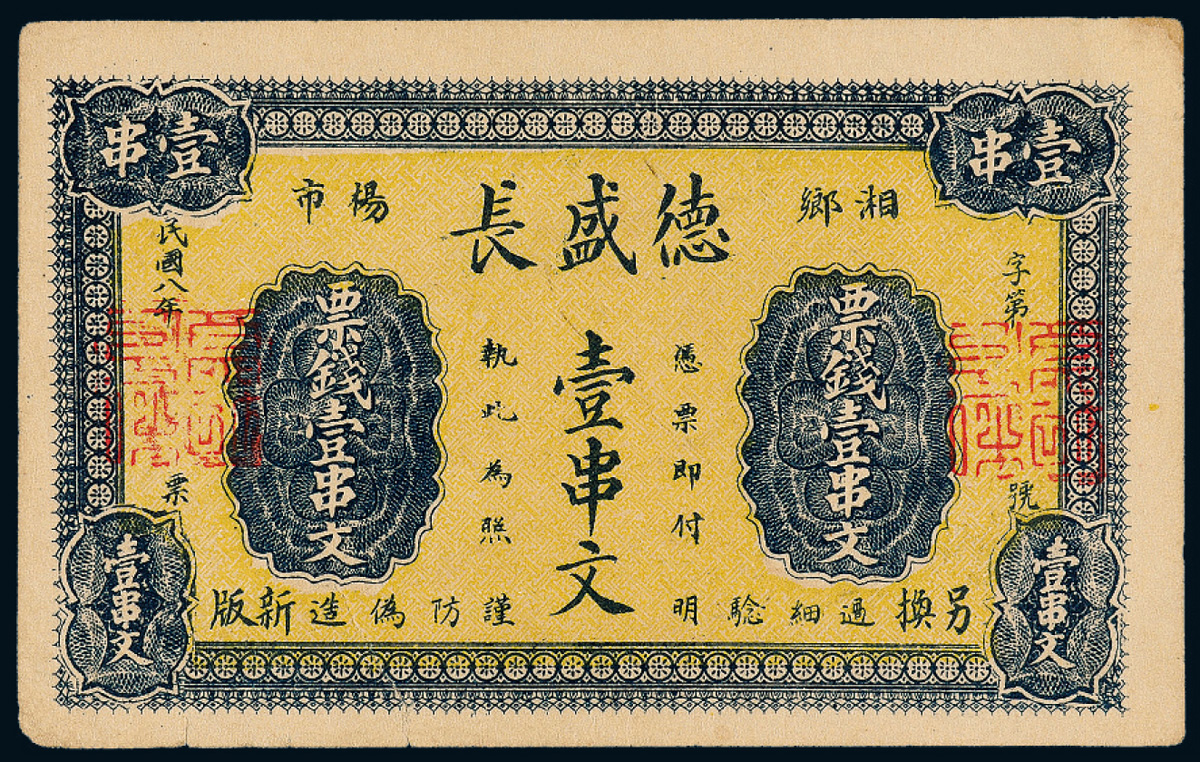 壹串
壹串
湘鄉
德盛長
楊市
字第 號
票錢壹串文
憑票即付
壹串文
執此為照
票錢壹串文
民國八年 票
另換過細騐明
謹防偽造新版
壹串文
壹串文